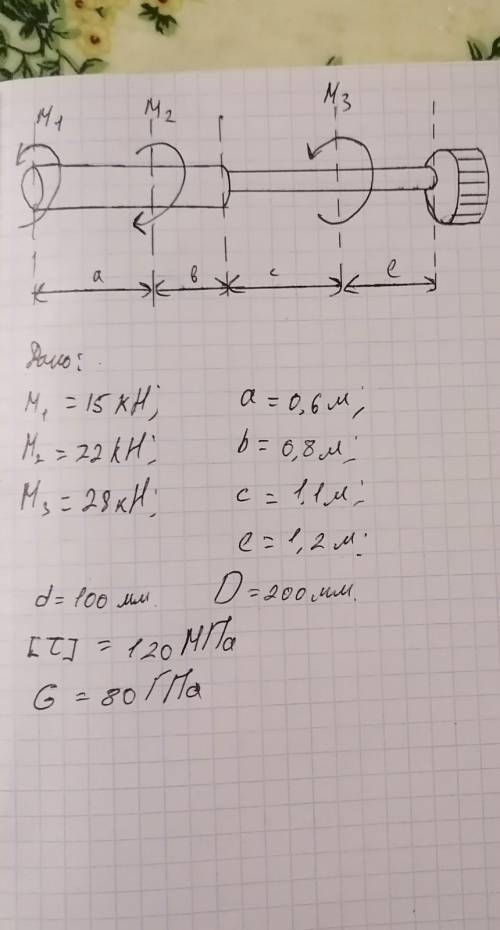 M₁ M₂ M₃
a в c e
Дано:
M₁ = 15 кН; a = 0,6 м;
M₂ = 22 кН; b = 0,8 м;
M₃ = 28 кН; c = 1,1 м;
e = 1,2 м;
d = 100 мм. D = 200 мм.
[τ] = 120 МПа
G = 80 ГПа